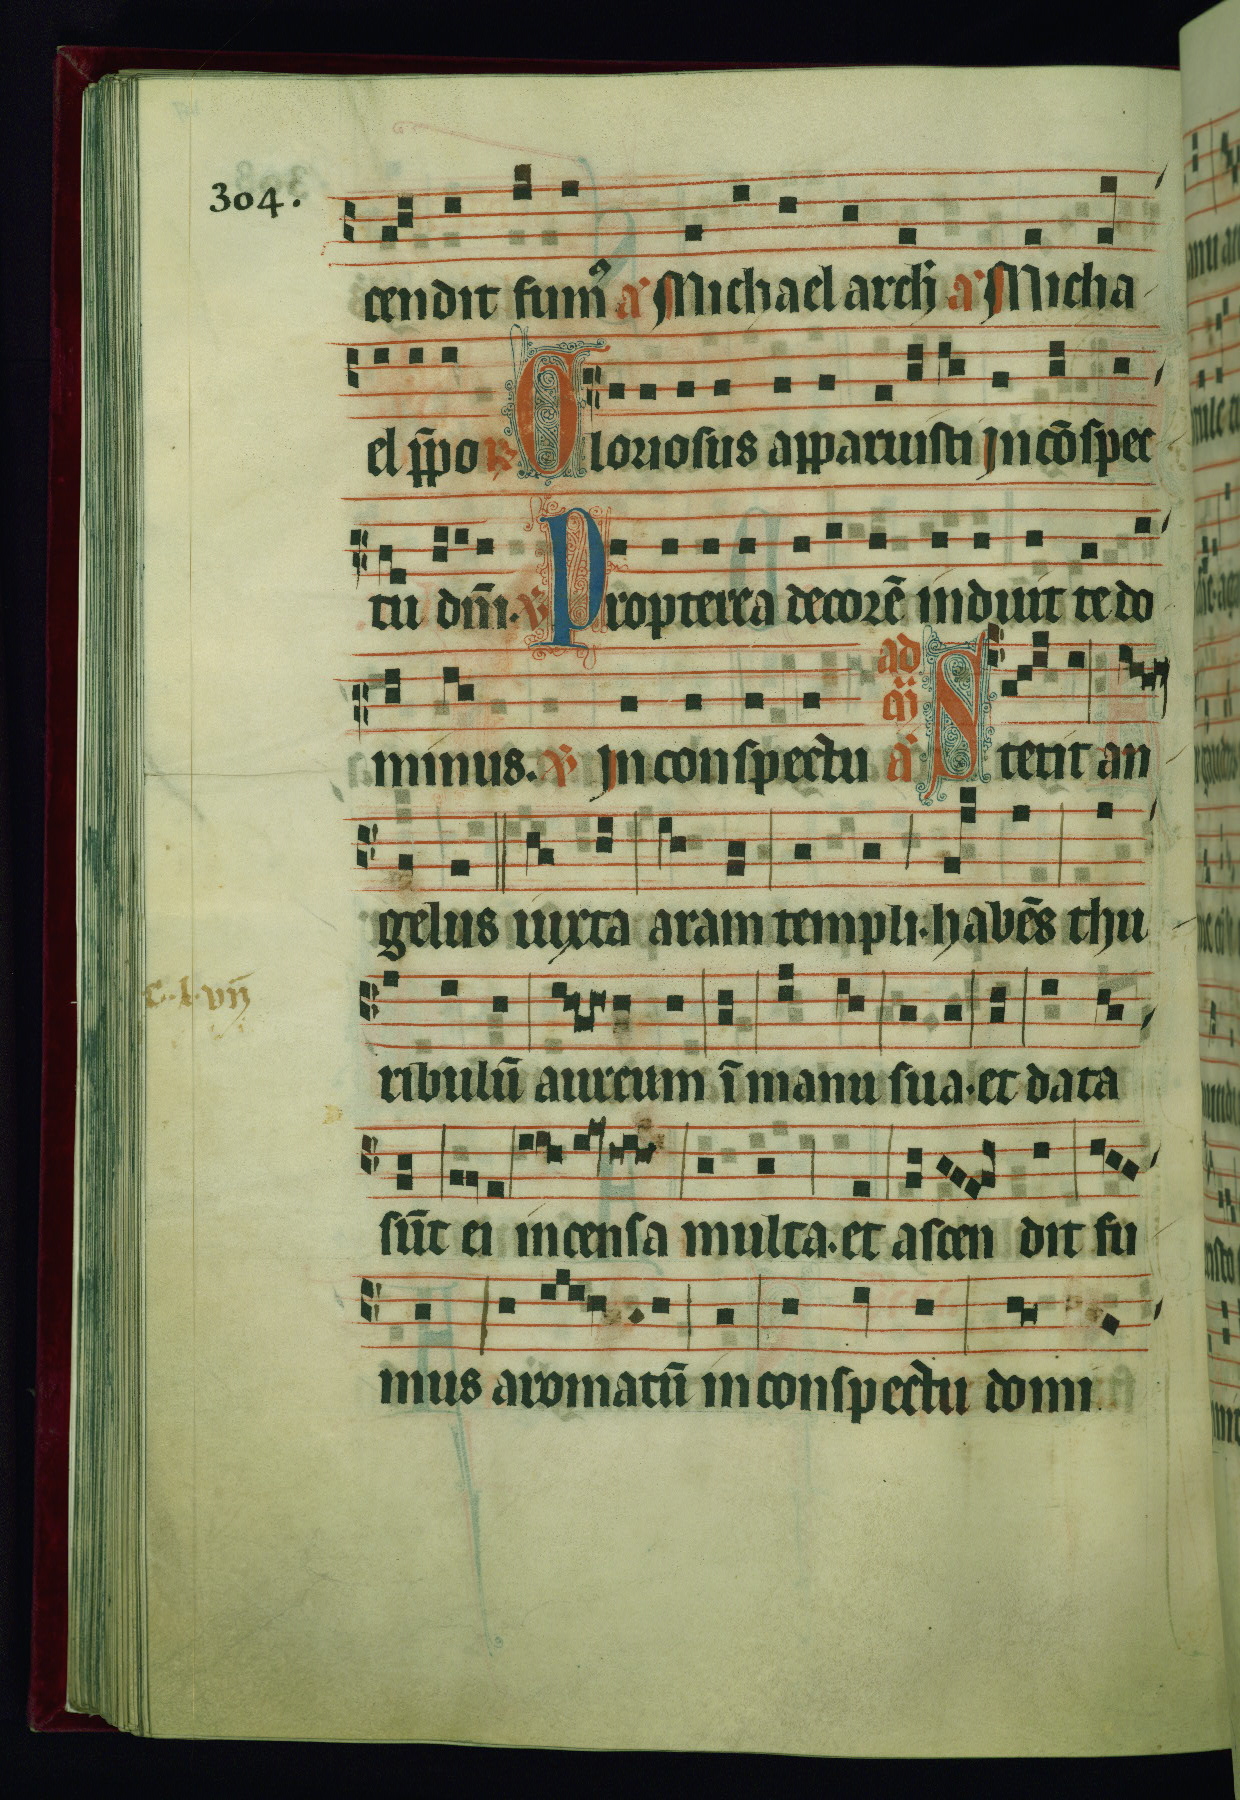 304.
cendit fum⁹ a᷑ Michael arch̄ a᷑ Micha
el p̄po ℣ Gloriosus apparuisti In cōspec
tu dn̄i. ℣ Propterea decorē induit te do
ad
minus. ℟ In conspectu a᷑ Stetit an
gelus iuxta aram templi. habēs thu
c.l.vij
ribulū aureum ī manu sua. et data
sūt ei incensa multa. et ascendit fu
mus aromatū in conspectu domi